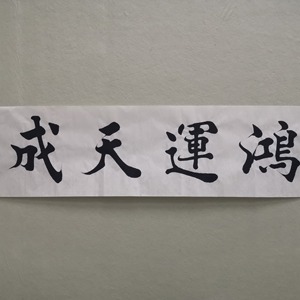 鴻運天成